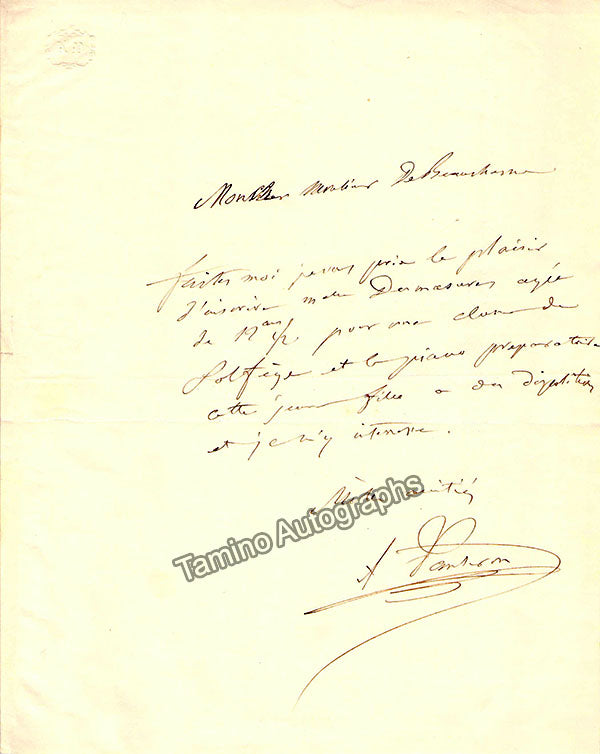 Mon cher Monsieur De Beauchesne
faites moi je vous prie le plaisir
d'inscrire melle Desmasures agée
de 12 ans 1/2 pour une classe de
Solfège et le piano preparatoire
cette jeune fille a des dispositions
et je m'y interesse.
amitiés
A Panseron
Tamino Autographs